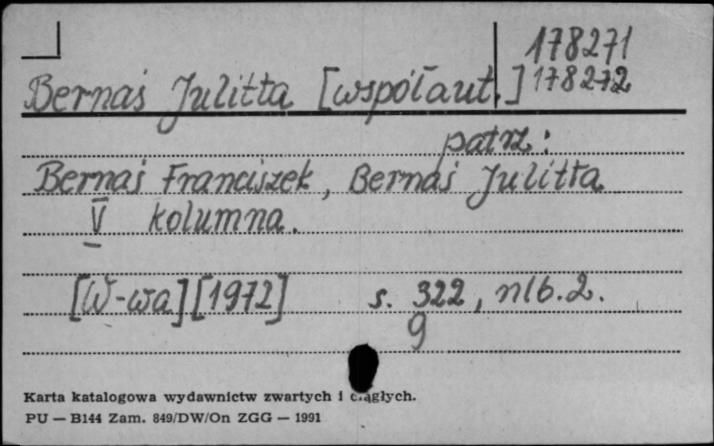 178271
Bernaś Julitta [współaut.] 178272
patrz:
Bernaś Franciszek, Bernaś Julitta
V kolumna.
[W-wa] [1972] s. 322, nlb. 2.
9
Karta katalogowa wydawnictw zwartych i ciągłych.
PU — B144 Zam. 849/DW/On ZGG — 1991